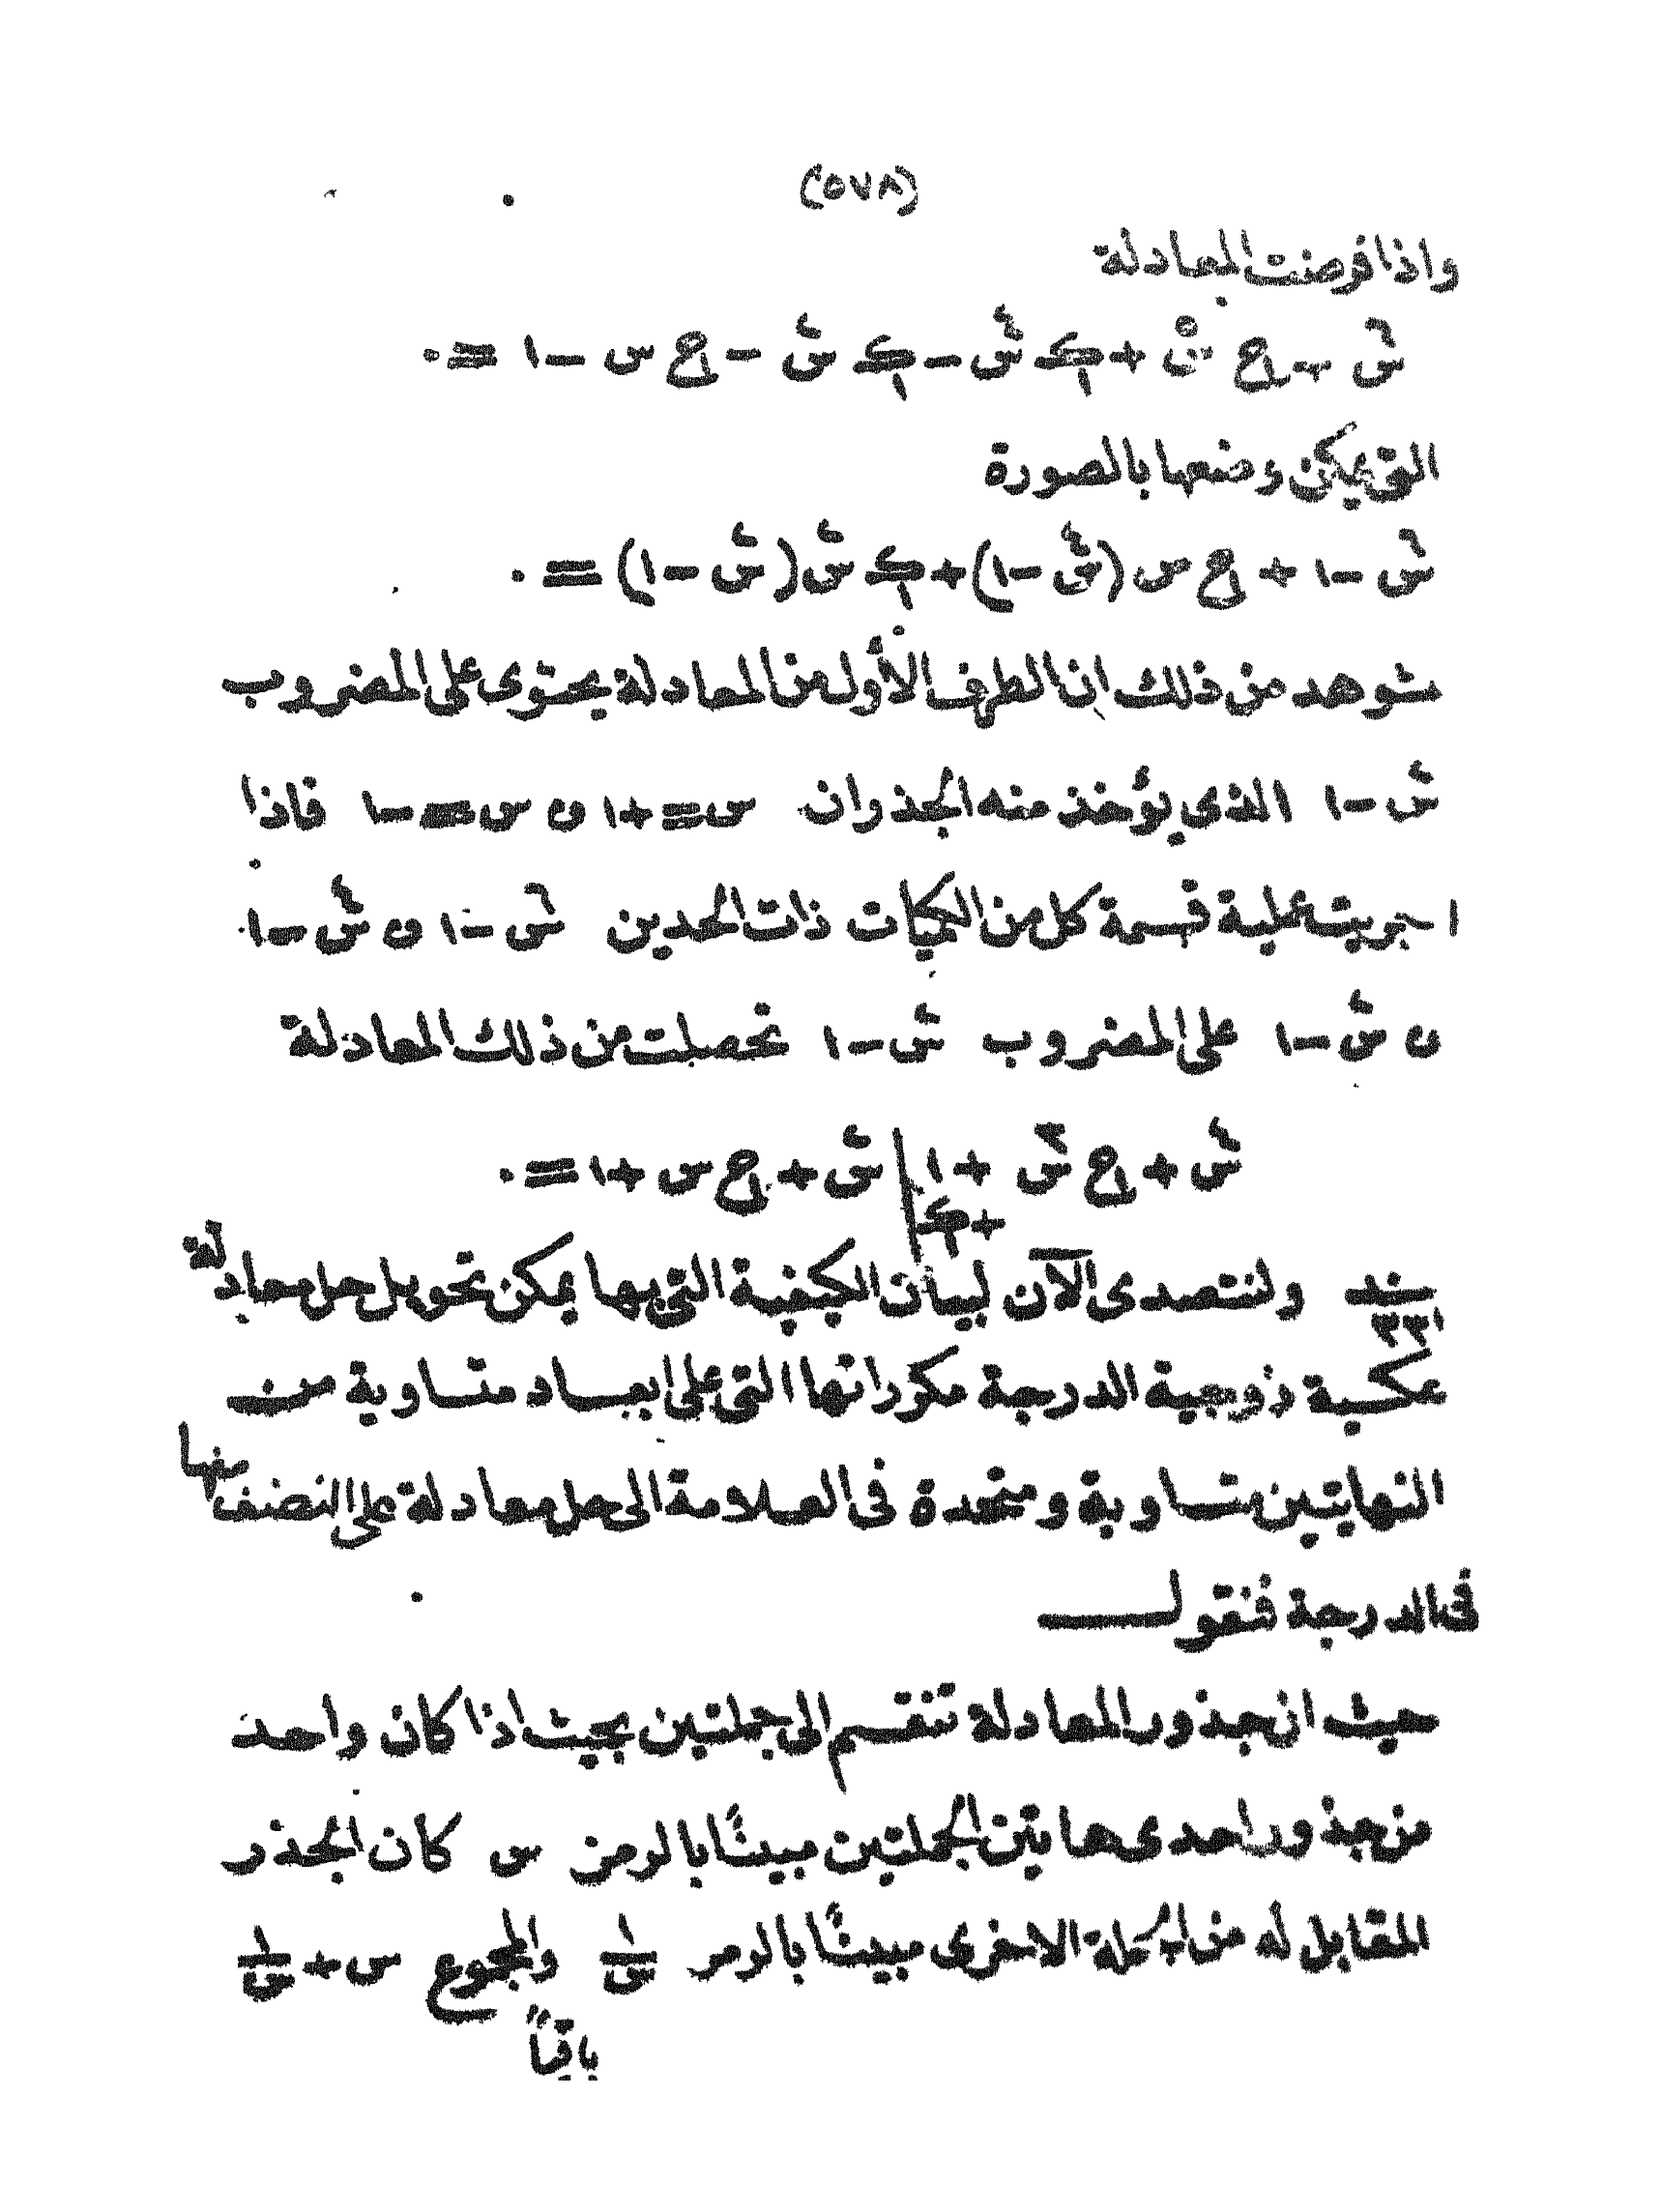 (٥٧٨)
واذا فرضت المعادلة
س٦ + ح س٥ + ك س٤ − ك س٢ − ح س − ١ = ٠
التى يمكن وضعها بالصورة
س٦ − ١ + ح س (س٤ − ١) + ك س٢ (س٢ − ١) = ٠
شوهد من ذلك ان الطرف الأول من المعادلة يحتوى على المضروب
س٢ − ١ الذى يؤخذ منه الجذران س = + ١ و س = − ١ فاذا
اجريت عملية قسمة كل من الكميات ذات الحدين س٦ − ١ و س٤ − ١
و س٢ − ١ على المضروب س٢ − ١ تحصلت من ذلك المعادلة
س٤ + ح س٣ + ١ | س٢ + ح س + ١ = ٠
+ ك |
بند ٣٣١ ولنتصدى الآن لبيان الكيفية التى بها يمكن تحويل حل معادلة
عكسية زوجية الدرجة مكرراتها التى على ابعاد متساوية من
النهايتين متساوية ومتحدة فى العلامة الى حل معادلة على النصف منها
فى الدرجة فنقول
حيث ان جذور المعادلة تنقسم الى جملتين بحيث اذا كان واحد
من جذور احدى هاتين الجملتين مبينًا بالرمز س كان الجذر
المقابل له من الجملة الاخرى مبينًا بالرمز ١/س والمجموع س + ١/س
باقياً